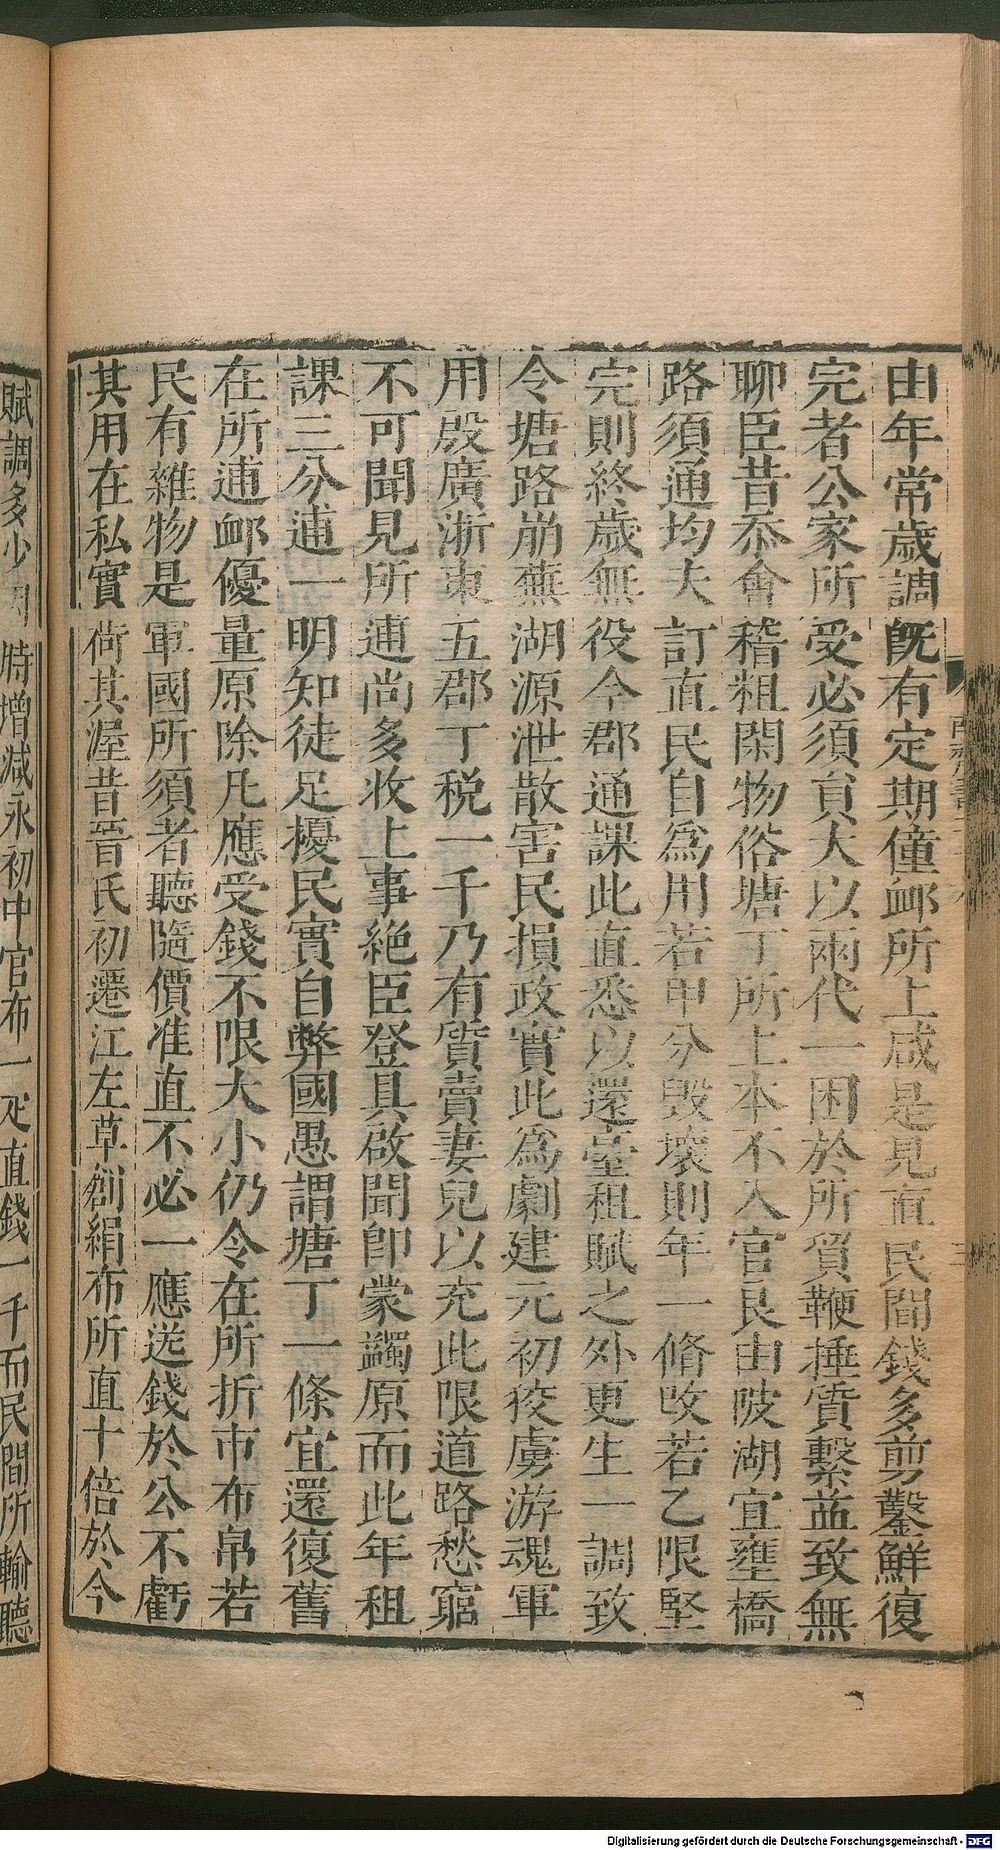 由年常歲調既有定期僮䘏所上咸是見直民間錢多剪鑿鮮復
完者公家所受必須員大以兩代一困於所貿鞭捶質繫益致無
聊臣昔忝會稽粗閑物俗塘丁所上本不入官良由陂湖宜壅橋
路須通均夫訂直民自為用若甲分毀壞則年一脩改若乙限堅
完則終歲無役今郡通課此直悉以還臺租賦之外更生一調致
令塘路崩蕪湖源泄散害民損政實此為劇建元初狡虜游魂軍
用殷廣浙東五郡丁税一千乃有質賣妻兒以充此限道路愁窮
不可聞見所逋尚多收上事絶臣登具啟聞即蒙蠲原而此年租
課三分逋一明知徒足擾民實自弊國愚謂塘丁一條宜還復舊
在所逋䘏優量原除凡應受錢不限大小仍令在所折市布帛若
民有雜物是軍國所須者聽隨價准直不必一應送錢於公不虧
其用在私實荷其渥昔晉氏初遷江左草創絹布所直十倍於今
賦調多少因時增減永初中官布一疋直錢一千而民間所輸聽
Digitalisierung gefördert durch die Deutsche Forschungsgemeinschaft - DFG